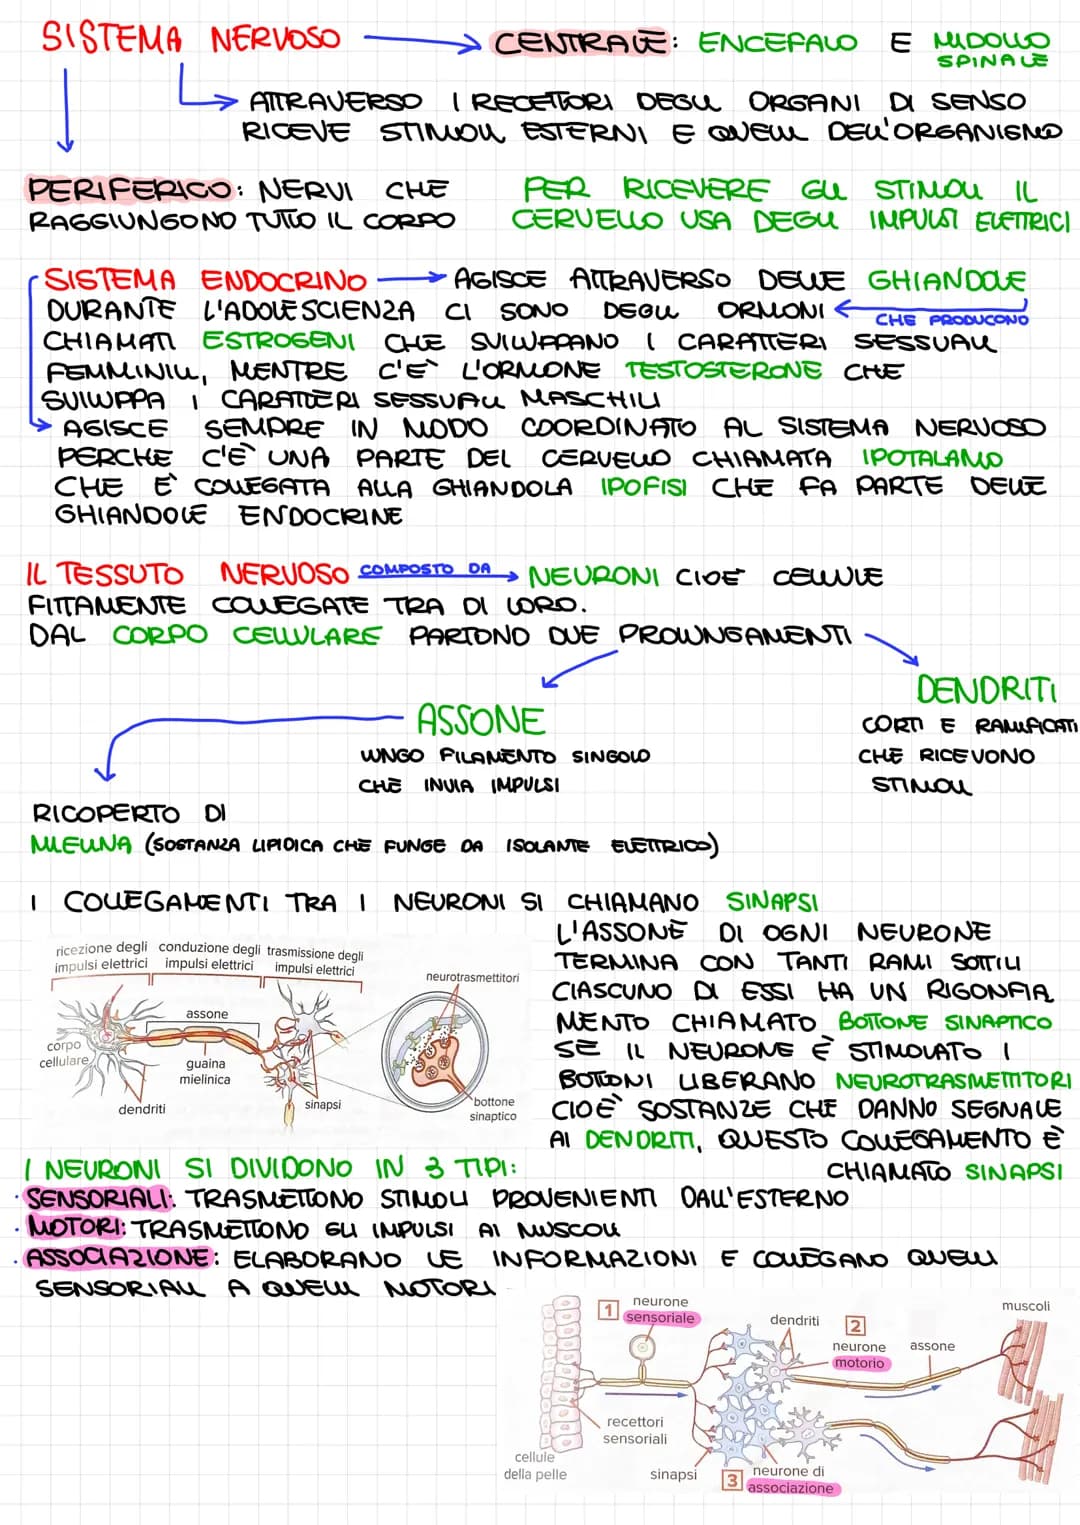 SISTEMA NERVOSO → CENTRALE: ENCEFALO E MIDOLLO
SPINALE
ATTRAVERSO I RECETTORI DEGLI ORGANI DI SENSO
RICEVE STIMOLI ESTERNI E QUELLI DELL'ORGANISMO
PERIFERICO: NERVI CHE
RAGGIUNGONO TUTTO IL CORPO
PER RICEVERE GLI STIMOLI IL
CERVELLO USA DEGLI IMPULSI ELETTRICI
SISTEMA ENDOCRINO → AGISCE ATTRAVERSO DELLE GHIANDOLE
DURANTE L'ADOLESCIENZA CI SONO DEGLI ORMONI ← CHE PRODUCONO
CHIAMATI ESTROGENI CHE SVILUPPANO I CARATTERI SESSUALI
FEMMINILI, MENTRE C'È L'ORMONE TESTOSTERONE CHE
SVILUPPA I CARATTERI SESSUALI MASCHILI
AGISCE SEMPRE IN MODO COORDINATO AL SISTEMA NERVOSO
PERCHE C'È UNA PARTE DEL CERVELLO CHIAMATA IPOTALAMO
CHE È COLLEGATA ALLA GHIANDOLA IPOFISI CHE FA PARTE DELLE
GHIANDOLE ENDOCRINE
IL TESSUTO NERVOSO COMPOSTO DA → NEURONI CIOE CELLULE
FITTAMENTE COLLEGATE TRA DI LORO.
DAL CORPO CELLULARE PARTONO DUE PROLUNGAMENTI
DENDRITI
CORTI E RAMIFICATI
CHE RICEVONO
STIMOLI
ASSONE
LUNGO FILAMENTO SINGOLO
CHE INVIA IMPULSI
RICOPERTO DI
MIELINA (SOSTANZA LIPIDICA CHE FUNGE DA ISOLANTE ELETTRICO)
I COLLEGAMENTI TRA I NEURONI SI CHIAMANO SINAPSI
L'ASSONE DI OGNI NEURONE
TERMINA CON TANTI RAMI SOTTILI
CIASCUNO DI ESSI HA UN RIGONFIA
MENTO CHIAMATO BOTTONE SINAPTICO
SE IL NEURONE È STIMOLATO I
BOTTONI LIBERANO NEUROTRASMETTITORI
CIOÈ SOSTANZE CHE DANNO SEGNALE
AI DENDRITI, QUESTO COLLEGAMENTO È
CHIAMATO SINAPSI
ricezione degli impulsi elettrici
conduzione degli impulsi elettrici
trasmissione degli impulsi elettrici
neurotrasmettitori
assone
corpo
cellulare
guaina
mielinica
dendriti
sinapsi
bottone
sinaptico
I NEURONI SI DIVIDONO IN 3 TIPI:
· SENSORIALI: TRASMETTONO STIMOLI PROVENIENTI DALL'ESTERNO
· MOTORI: TRASMETTONO GLI IMPULSI AI MUSCOLI
· ASSOCIAZIONE: ELABORANO LE INFORMAZIONI E COLLEGANO QUELLI
SENSORIALI A QUELLI MOTORI
1 neurone
sensoriale
dendriti
2
neurone
motorio
assone
muscoli
recettori
sensoriali
cellule
della pelle
sinapsi
3 neurone di
associazione